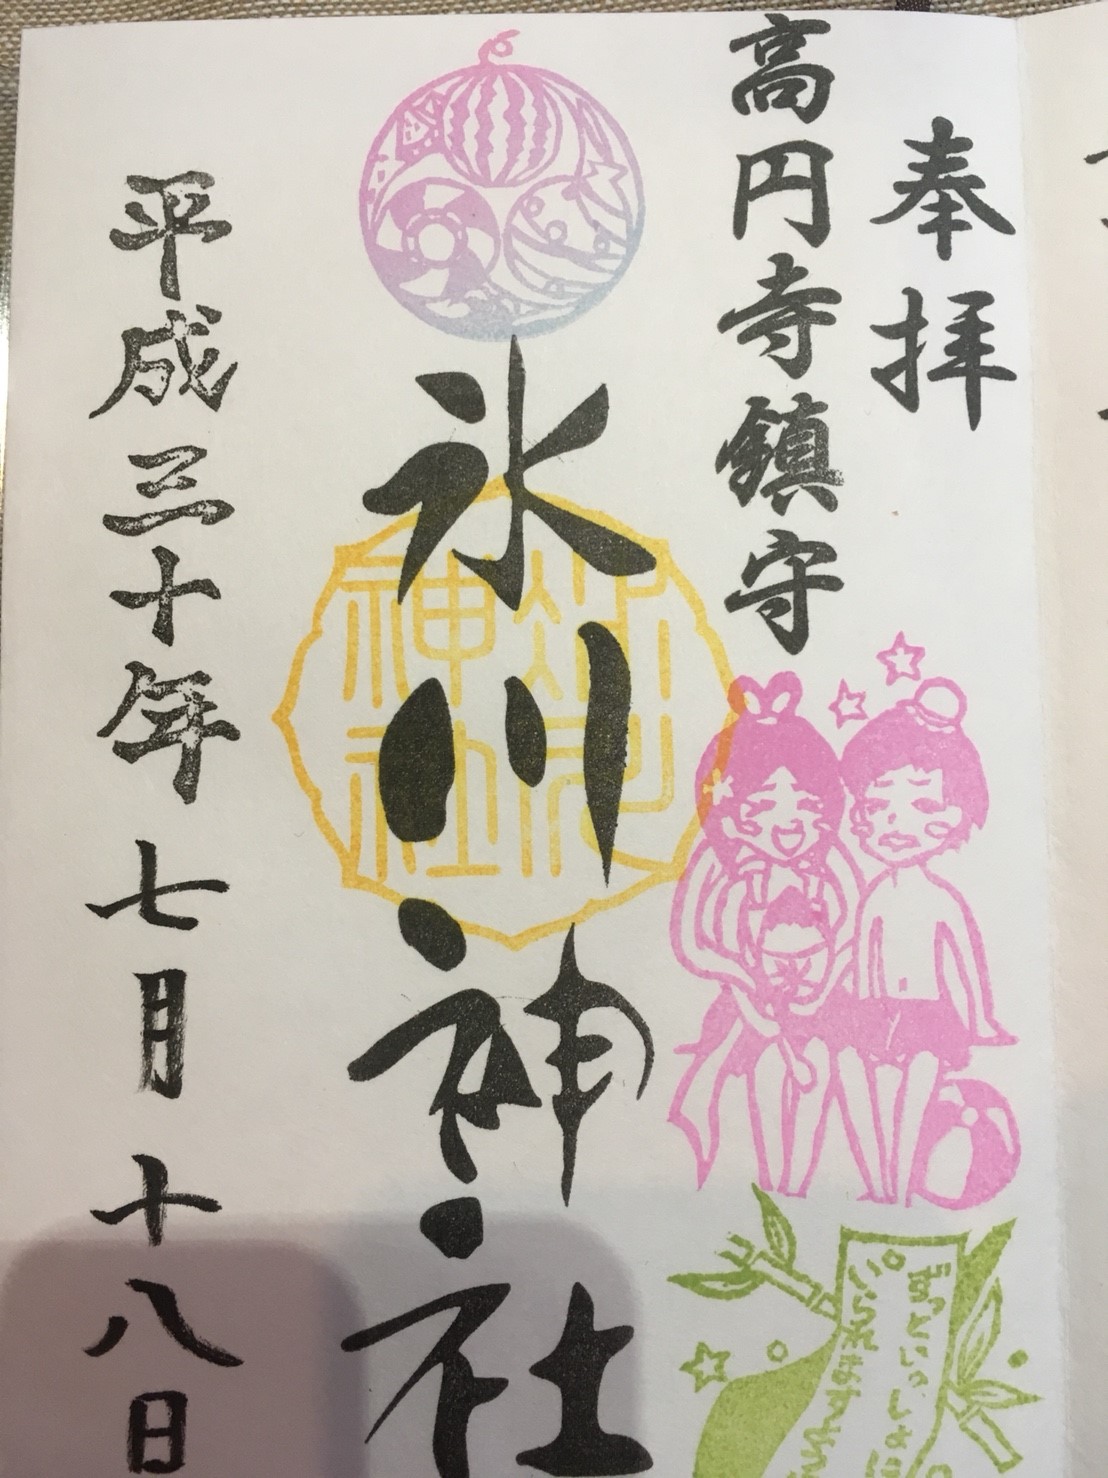 奉拝
高円寺鎮守
氷川神社
平成三十年七月十八日
ずっといっしょに
いられますように